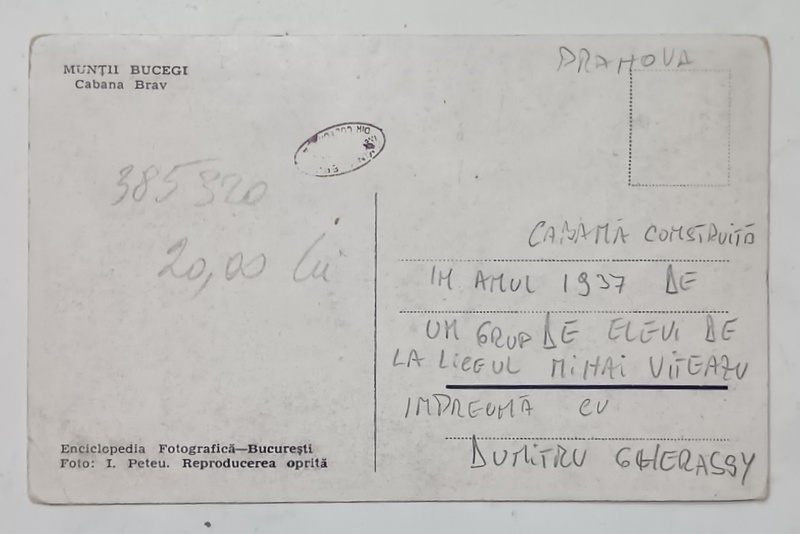 MUNȚII BUCEGI
Cabana Brav
PRAHOVA
385920
20,00 lei
CABANĂ CONSTRUITĂ
IN ANUL 1937 DE
UN GRUP DE ELEVI DE
LA LICEUL MIHAI VITEAZU
IMPREUNĂ CU
DUMITRU GHERASSY
Enciclopedia Fotografică—București
Foto: I. Peteu. Reproducerea oprită